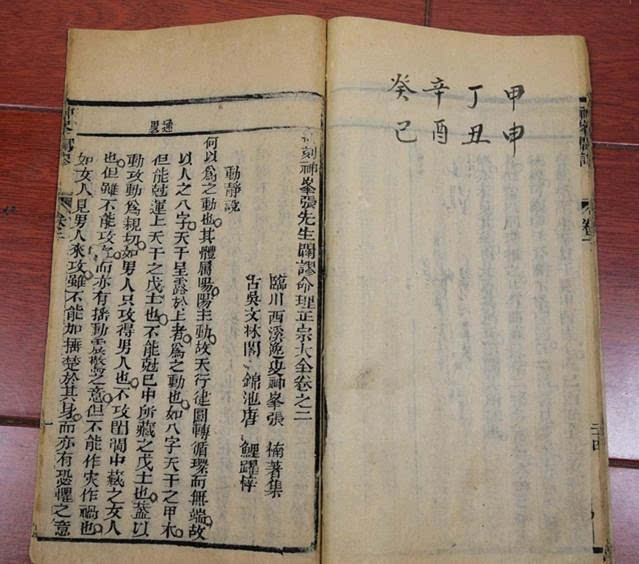 甲申
丁丑
辛酉
癸巳
刻神峯張先生闢謬命理正宗大全卷之
臨川西溪逸叟神峯張 楠著集
古吳文林閣 錦池唐 鯉躍梓
動靜說
何以為之動也其體屬陽陽主動故天行健圓轉循環而無端故
以人之八字天干呈露於上者為之動也如八字天干之甲木
但能尅運上天干之戊土也不能尅巳中所藏之戊土也蓋以
動攻動為親切如男人只攻得男人也不攻閨閫中藏之女人
也但雖不能攻之而亦有搖動震驚之意但不能作灾作禍也
如女人見男人來攻雖不能加捶楚於其身而亦有恐懼之意